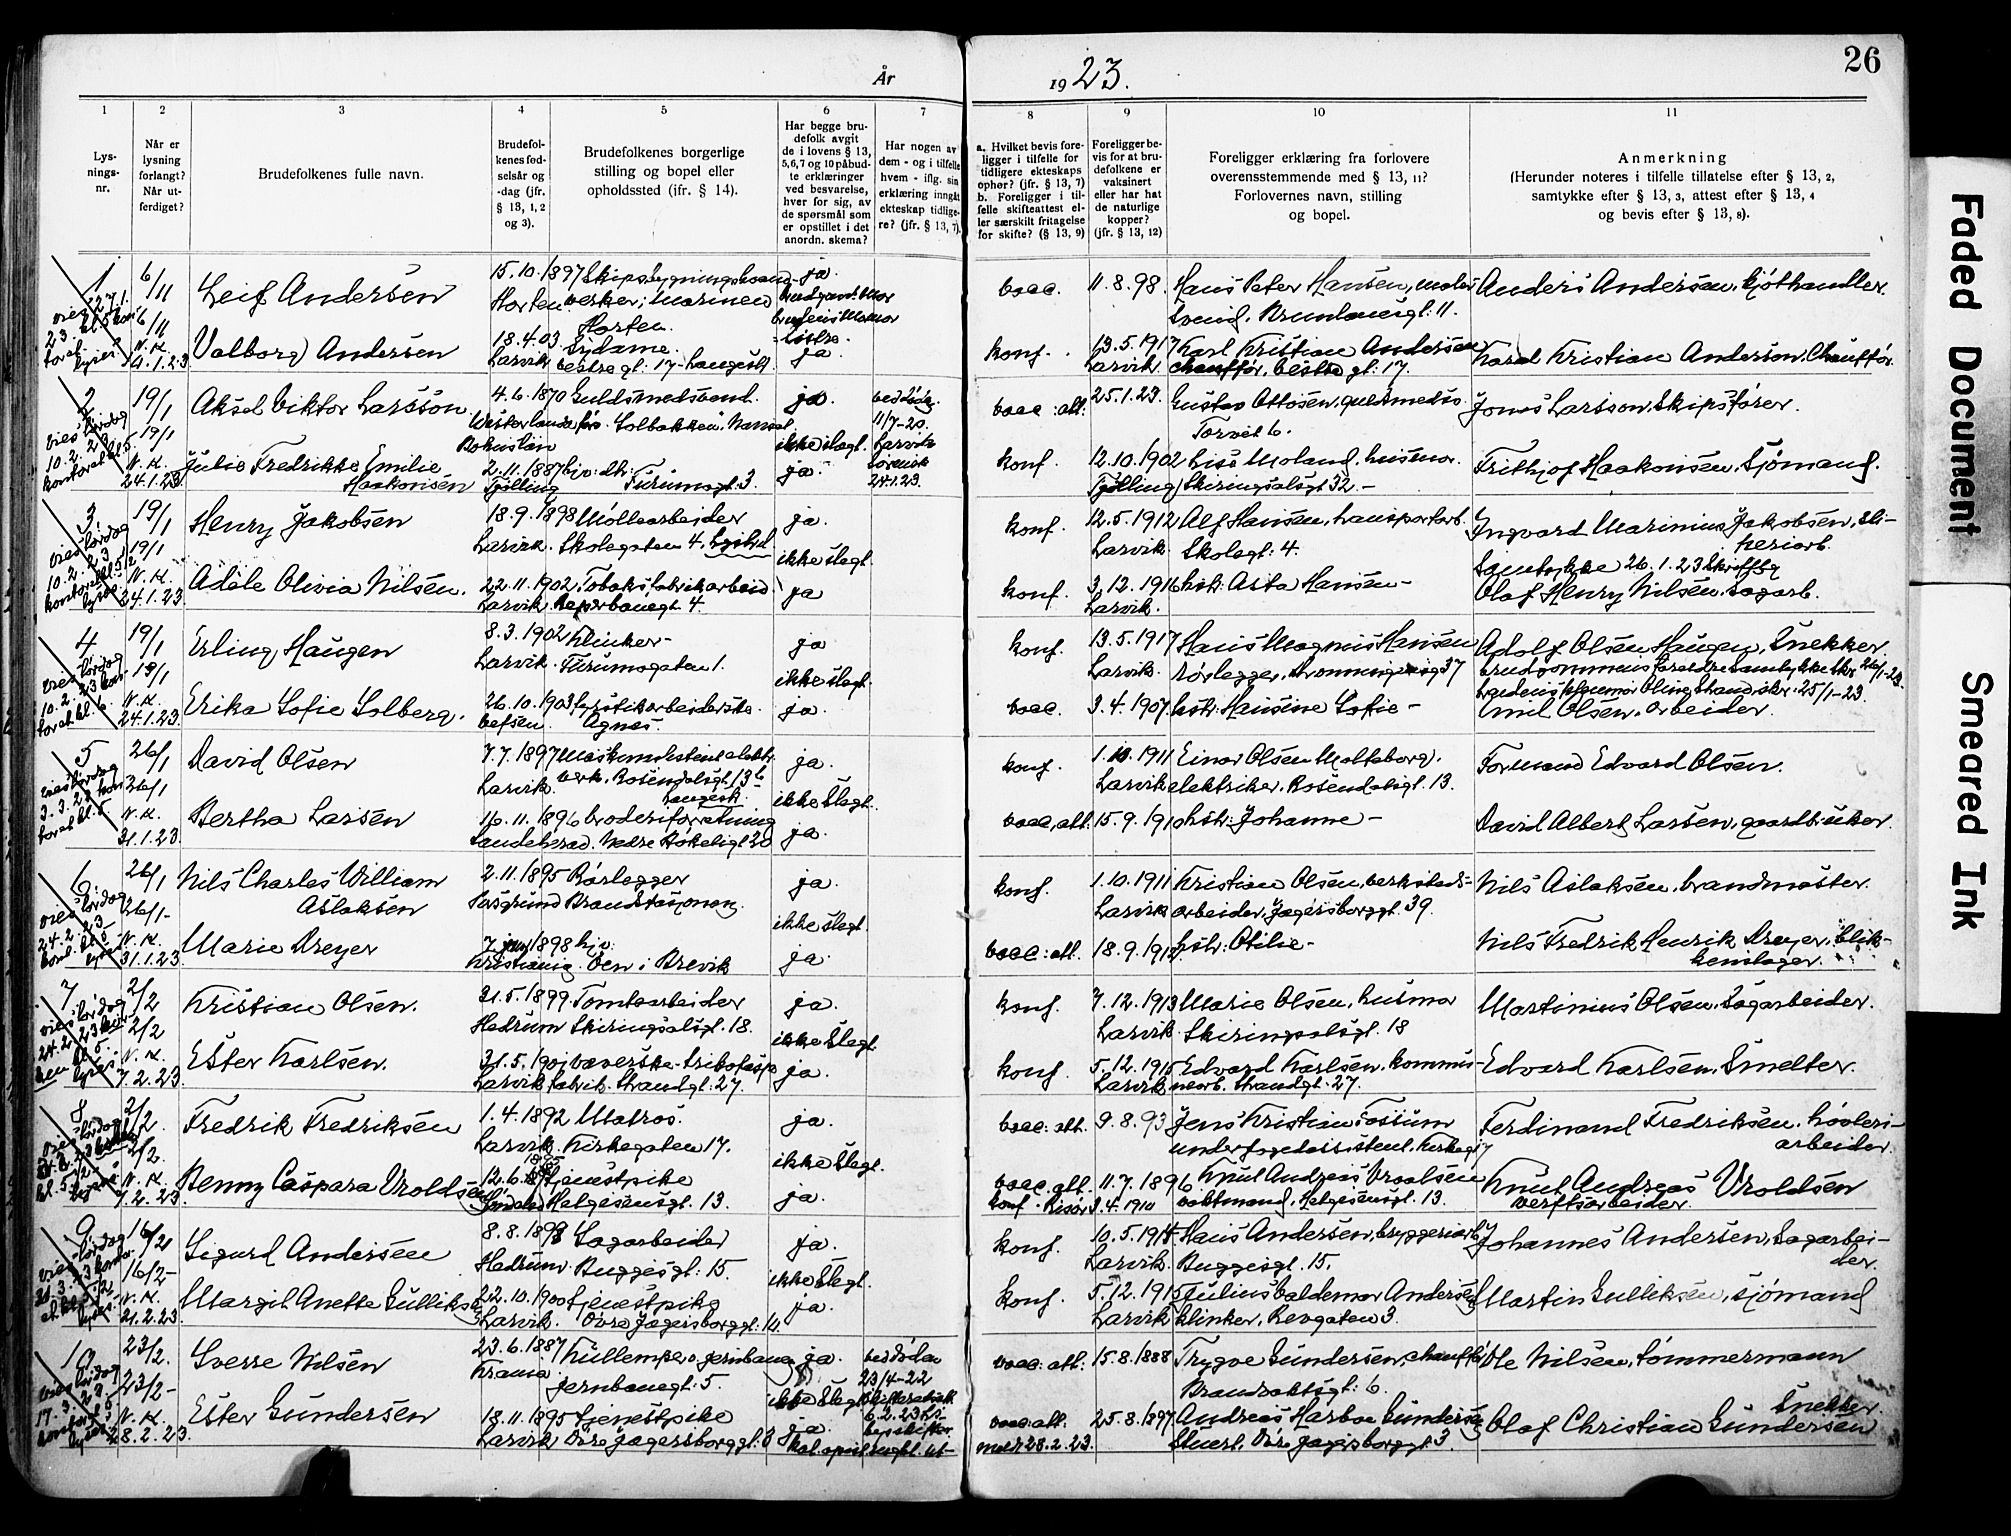 År 1923.
26
1 2 3 4 5 6 7 8 9 10 11
Lys-
nings-
nr.
Når er
lysning
forlangt?
Når ut-
ferdiget?
Brudefolkenes fulle navn.
Brudefol-
kenes fød-
selsår og
-dag (jfr.
§ 13, 1, 2
og 3).
Brudefolkenes borgerlige
stilling og bopel eller
opholdssted (jfr. § 14).
Har begge bru-
defolk avgit
de i lovens § 13,
5,6,7 og 10 påbud-
te erklæringer
ved besvarelse,
hver for sig, av
de spørsmål som
er opstillet i det
anordn. skema?
Har nogen av
dem - og i tilfelle
hvem - iflg. sin
erklæring inngåt
ekteskap tidlige-
re? (jfr. § 13, 7).
a. Hvilket bevis fore-
ligger i tilfelle for
tidligere ekteskaps
ophør? (jfr. § 13, 7)
b. Foreligger i til-
felle skifteattest el-
ler særskilt fritagelse
for skifte? (§ 13, 9)
Foreligger be-
vis for at bru-
defolkene er
vaksinert
eller har hat
de naturlige
kopper?
(jfr. § 13, 12)
Foreligger erklæring fra forlovere
overensstemmende med § 13, 11?
Forlovernes navn, stilling
og bopel.
Anmerkning
(Herunder noteres i tilfelle tillatelse efter § 13, 2,
samtykke efter § 13, 3, attest efter § 13, 4
og bevis efter § 13, 8).
1 6/11 Leif Andersen 15.10.1897 Skipsbygningshaand-
Horten verker i marinen
Horten.
ja.
vacc. 11.8.98. Hans Peter Hansen, maler
Svend. Brunlanesgt. 11.
Anders Andersen, kjøthandler.
6/11 Valborg Andersen 18.4.03 Sydame.
Larvik Vestre gt. 17 - Langestt.
ja
konf. 13.5.1917 Karl Kristian Andersen
Larvik chauffør, Vestre gt. 17.
Karl Kristian Andersen, Chauffør.
2 19/1 Aksel Viktor Larsson 4.6.1870 Guldsmedsvend.
Solbakken, Nanset.
ja
ikke slegt.
11/7-20.
Larvik
24.1.23.
vacc. att. 25.1.23. Gustav Ottosen, guldsmeds.
Torvet 6.
Jonas Larsson, Skipsfører.
19/1 24.1.23 Julie Fredrikke Emilie
Haakonsen
2.11.1887 hjv. dtr.
Tjølling Furumogt. 3.
ja.
konf. 12.10.1902 Lise Moland, husmor.
Tjølling Skiringsalsgt 32. -
Frithjof Haakonsen, Sjømand.
3 19/1 Henry Jakobsen 18.9.1898 Møllearbeider
Larvik. Skolegaten 4.
ja.
ikke slegt.
konf. 12.5.1912 Alf Hansen, transportarb.
Larvik. Skolegt. 4.
Ingvard Marinius Jakobsen, sli-
periarb.
19/1 24.1.23 Adele Olivia Nilsen. 22.11.1902 Tobaksfabrikarbeid
Larvik Reperbanegt. 4.
ja
konf. 3.12.1916 hst. Asta Hansen -
Larvik.
Samtykke 26.1.23
Olaf Henry Nilsen, sagarb.
4 19/1 Erling Haugen 8.3.1902 Klinker -
Larvik. Furumogaten 1.
ja
ikke slegt.
konf. 13.5.1917 Hans Magnus Hansen
Larvik. rørlegger, Dronningensgt 37
Adolf Olsen Haugen, Snekker.
19/1 24.1.23. Erika Sofie Solberg. 26.10.1903 fyrstikarbeiderske.
Vefsen. Agnes.
ja.
vacc. 3.4.1907 hst. Hansine Sofie -
Emil Olsen, arbeider.
5 26/1 David Olsen 7.7.1897 Maskinassistent elektr.
Larvik. verk. Rosendalsgt. 13 b
Langestt.
ja.
ikke Slegt.
konf. 1.10.1911 Einar Olsen Molteberg.
Larvik elektriker, Rosendalsgt. 13.
Formand Edvard Olsen.
26/1 31.1.23. Bertha Larsen 16.11.1896 broderiforretning
Sandeherad. Nedre Bøkeligt 20
ja.
vacc, att. 15.9.1910 hst. Johanne -
David Albert Larsen, gaardbruker.
6 26/1 Nils Charles William
Aslaksen
2.11.1895 Rørlegger
Porsgrund Brandstasjonen.
ja.
ikke slegt.
konf. 1.10.1911 Kristian Olsen, verksteds-
Larvik arbeider, Jegersborggt. 39.
Nils Aslaksen, brandmester.
26/1- 31.1.23. Marie Dreyer 7 juni 1898 hjv.
Kristiania. Øen i Brevik
ja.
vacc: att. 18.9.1912 hst. Otilie -
Nils Fredrik Henrik Dreyer, blik-
kenslager.
7 2/2 Kristian Olsen. 31.5.1899. Tomtearbeider
Hedrum Skiringsalsgt. 18.
ja.
ikke Slegt
konf. 7.12.1913 Marie Olsen, husmor
Larvik Skiringsalsgt. 18
Martinius Olsen, Sagarbeider.
2/2 7.2.23. Ester Karlsen. 31.5.1901 væverske - 
Larvik fabrik. Strandgt. 27.
ja.
konf. 5.12.1915 Edvard Karlsen, kommu-
Larvik nearb. Strandgt. 27.
Edvard Karlsen, Smelter.
8 2/2. Fredrik Fredriksen 1.4.1892 Matros.
Larvik Kirkegaten 17.
ja.
ikke Slegt.
vacc: att. 9.8.93 Jens Kristian Fossum
underfogedassistent, Kirkegt 17
Ferdinand Fredriksen, høvleri-
arbeider.
2/2. 7.2.23 Benny Caspara Vroldsen 12.6. 1895 tjenestpike
Helgesensgt. 13
ja.
vacc. att. 11.7.1896 Knut Andreas Vroldsen
konf. Risør 3.4.1910 vaktmand, Helgesensgt. 13.
Knut Andreas Vroldsen
verftsarbeider.
9 16/2 Sigurd Andersen 8.8.1898 Sagarbeider
Hedrum. Buggesgt. 15.
ja.
ikke Slegt.
konf. 10.5.1914 Hans Andersen, bryggeriarb.
Larvik. Buggesgt. 15.
Johannes Andersen, Sagarbei-
der.
16/2- 21.2.23. Margit Anette Gulliksen 22.10.1900 tjenestpike
Larvik. Øvre Jegersborggt. 14.
ja.
konf. 5.12.1915 Julius Valdemar Andersen
Larvik klinker, Revgaten 3.
Martin Gulliksen, sjømand
10 23/2. Sverre Nilsen 23.6.1887 Kullemper v. jernbanen
Krania. Jernbanegt. 5.
ja.
ikke Slegt
ved døden
23/4-22
vacc: att. 15.8.1888 Trygve Gundersen, chauffør
Brandvaktsgt. 6.
Ole Nilsen, Tømmermann
23/2- 28.2.23. Ester Gundersen 18.11.1895 tjenestpike
Larvik Øvre Jegersborggt. 3
ja.
vacc: att. 25.8.1897 Andreas Harboe Gundersen
Stuert. Øvre Jegersborggt. 3
Olaf Christian Gundersen
Snekker.
Faded Document
Smeared Ink